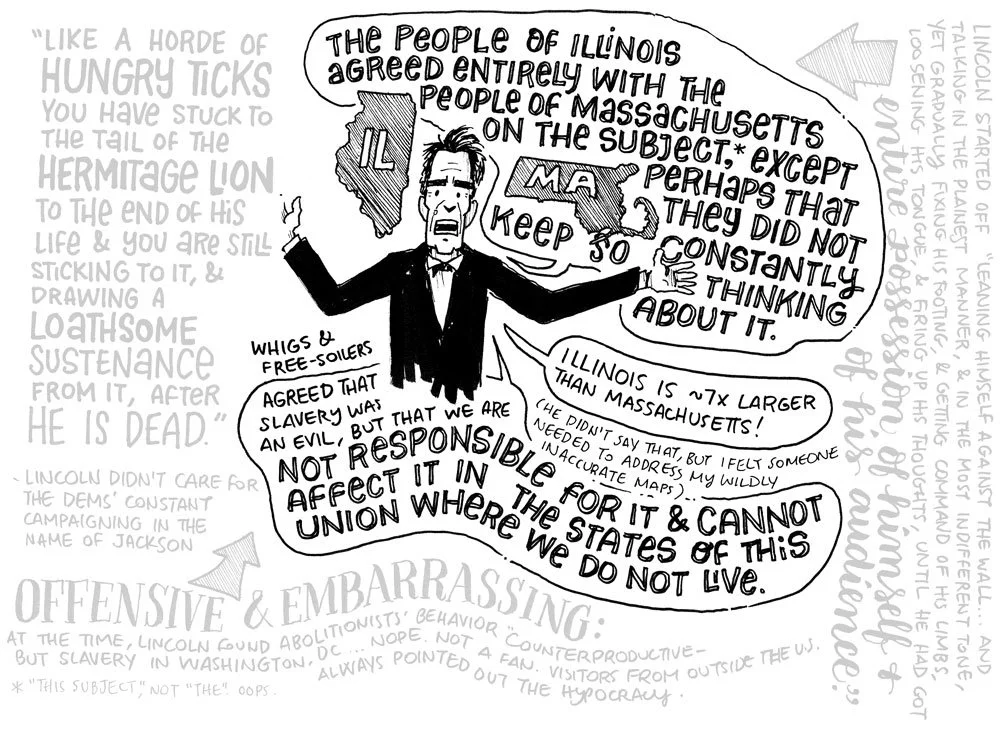 "LIKE A HORDE OF
HUNGRY TICKS
YOU HAVE STUCK TO
THE TAIL OF THE
HERMITAGE LION
TO THE END OF HIS
LIFE & YOU ARE STILL
STICKING TO IT, &
DRAWING A
LOATHSOME
SUSTENANCE
FROM IT, AFTER
HE IS DEAD."
- LINCOLN DIDN'T CARE FOR
THE DEMS' CONSTANT
CAMPAIGNING IN THE
NAME OF JACKSON
THE PEOPLE OF ILLINOIS
AGREED ENTIRELY WITH THE
PEOPLE OF MASSACHUSETTS
ON THE SUBJECT,* EXCEPT
PERHAPS THAT
THEY DID NOT
KEEP SO CONSTANTLY
THINKING
ABOUT IT.
IL
MA
ILLINOIS IS ~7X LARGER
THAN MASSACHUSETTS!
(HE DIDN'T SAY THAT, BUT I FELT SOMEONE
NEEDED TO ADDRESS MY WILDLY
INACCURATE MAPS)
WHIGS &
FREE-SOILERS
AGREED THAT
SLAVERY WAS
AN EVIL, BUT THAT WE ARE
NOT RESPONSIBLE FOR IT & CANNOT
AFFECT IT IN THE STATES OF THIS
UNION WHERE WE DO NOT LIVE.
LINCOLN STARTED OFF "LEANING HIMSELF AGAINST THE WALL... AND
TALKING IN THE PLAINEST MANNER, & IN THE MOST INDIFFERENT TONE,
YET GRADUALLY FIXING HIS FOOTING, & GETTING COMMAND OF HIS LIMBS,
LOOSENING HIS TONGUE, & FIRING UP HIS THOUGHTS, UNTIL HE HAD GOT
entire possession of himself &
of his audience."
OFFENSIVE & EMBARRASSING:
AT THE TIME, LINCOLN FOUND ABOLITIONISTS' BEHAVIOR "COUNTERPRODUCTIVE-
BUT SLAVERY IN WASHINGTON, DC... NOPE. NOT A FAN. VISITORS FROM OUTSIDE THE U.S.
ALWAYS POINTED OUT THE HYPOCRACY.
* "THIS SUBJECT," NOT "THE". OOPS.